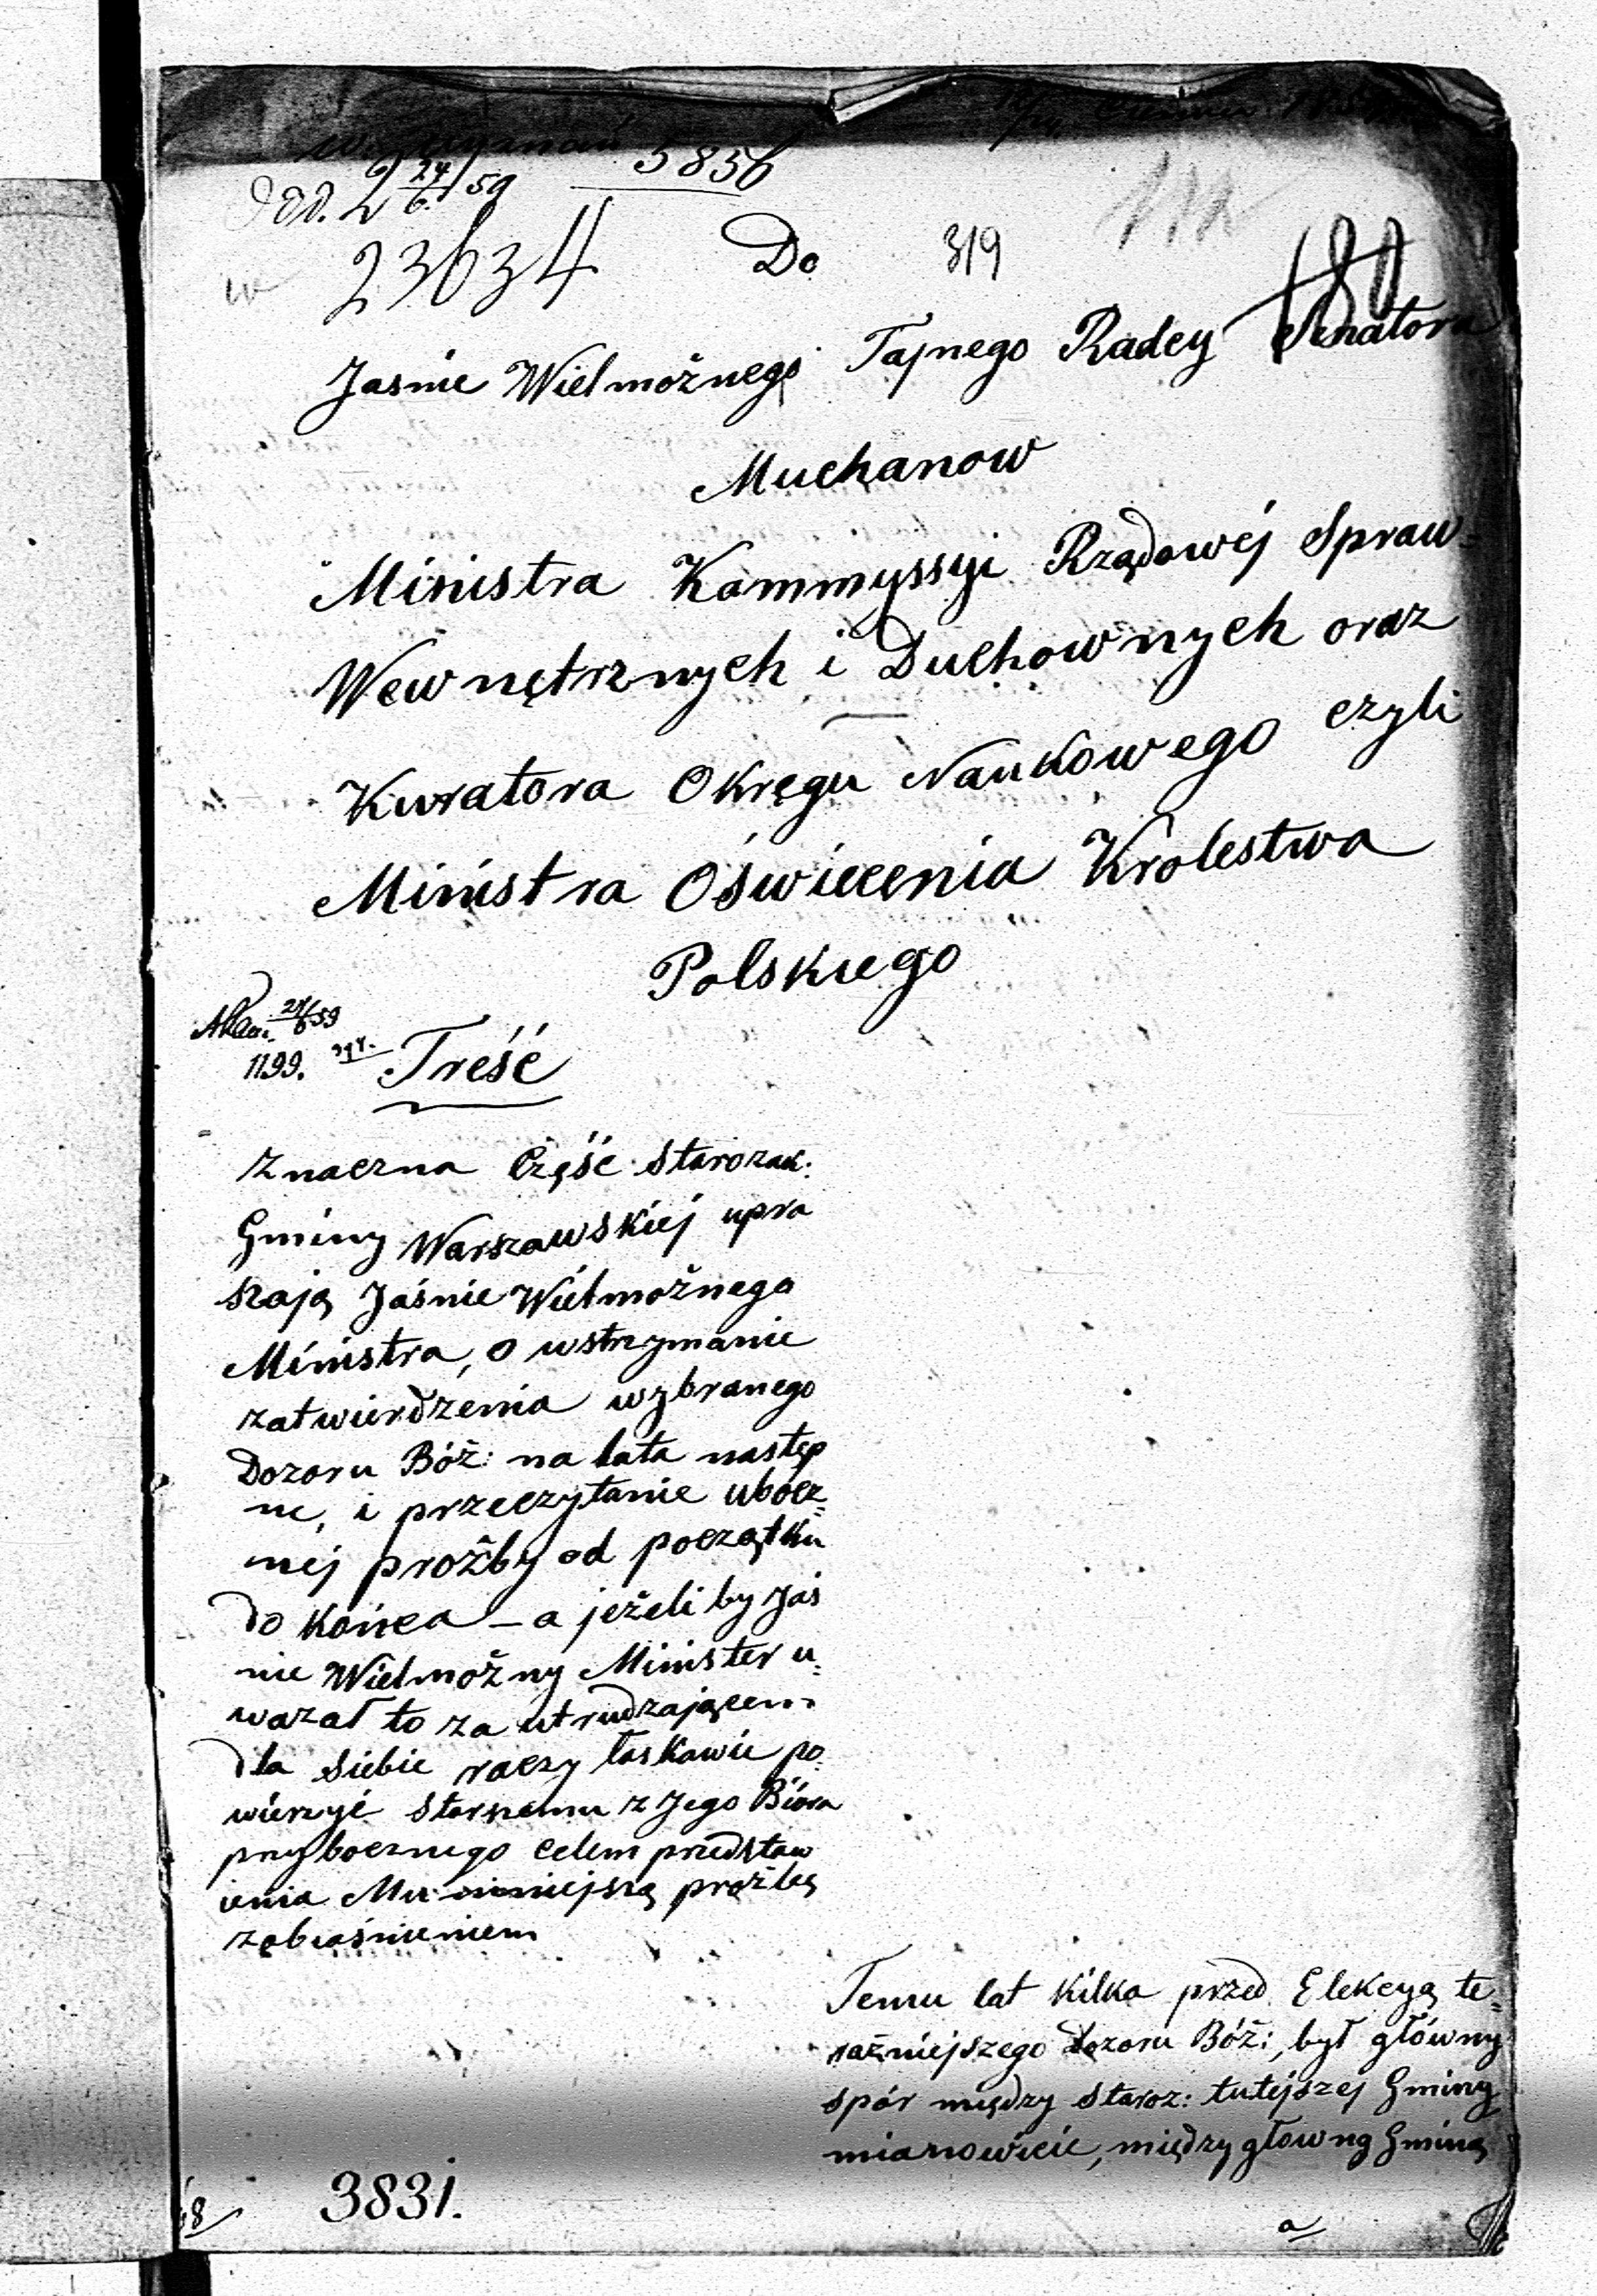 5856
24/6 59
23634
Do 319
180
Jasnie Wielmożnego Tajnego Radcy Senatora
Muchanow
Ministra Kommyssyi Rządowéj Spraw=
Wewnętrznych i Duchownych oraz
Kuratora Okręgu Naukowego czyli
Ministra Oświecenia Krolestwa
Polskiego
1199.
Treść
Znaczna Część Starozak:
Gminy Warszawskiéj upra
szają Jaśnie Wielmożnego
Ministra, o wstrzymanie
zatwierdzenia wybranego
Dozoru Bóż: na lata następ
ne, i przeczytanie ubocz=
nej proźby od początku
do końca – a jeżeli by Jaś
nie Wielmożny Minister u=
wazał to za utrudzającem
dla siebie raczy łaskawie po=
wierzyć Starszemu z Jego Bióra
przybocznego celem przedstaw
ienia Mu niniejszą proźbę
z objaśnieniem
Temu lat kilka przed Elekcyą te=
raźniejszego Dozoru Bóż:, był główny
spór między Staroz: tutejszej Gminy
mianowicie, między głowną Gminą
3831.
a